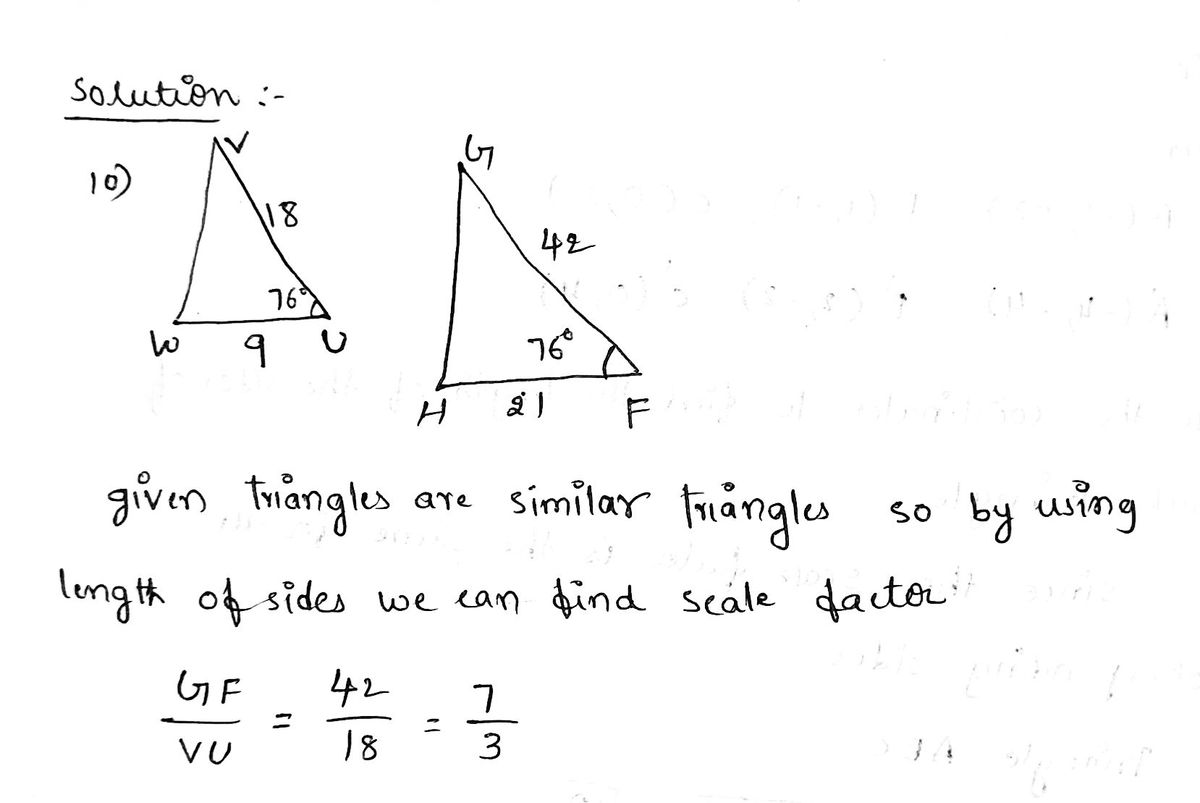 Solution :-
10)
V
18
76°
W 9 U
G
42
76°
H 21 F
given triangles are similar triangles so by using
length of sides we can find scale factor
GF/VU = 42/18 = 7/3